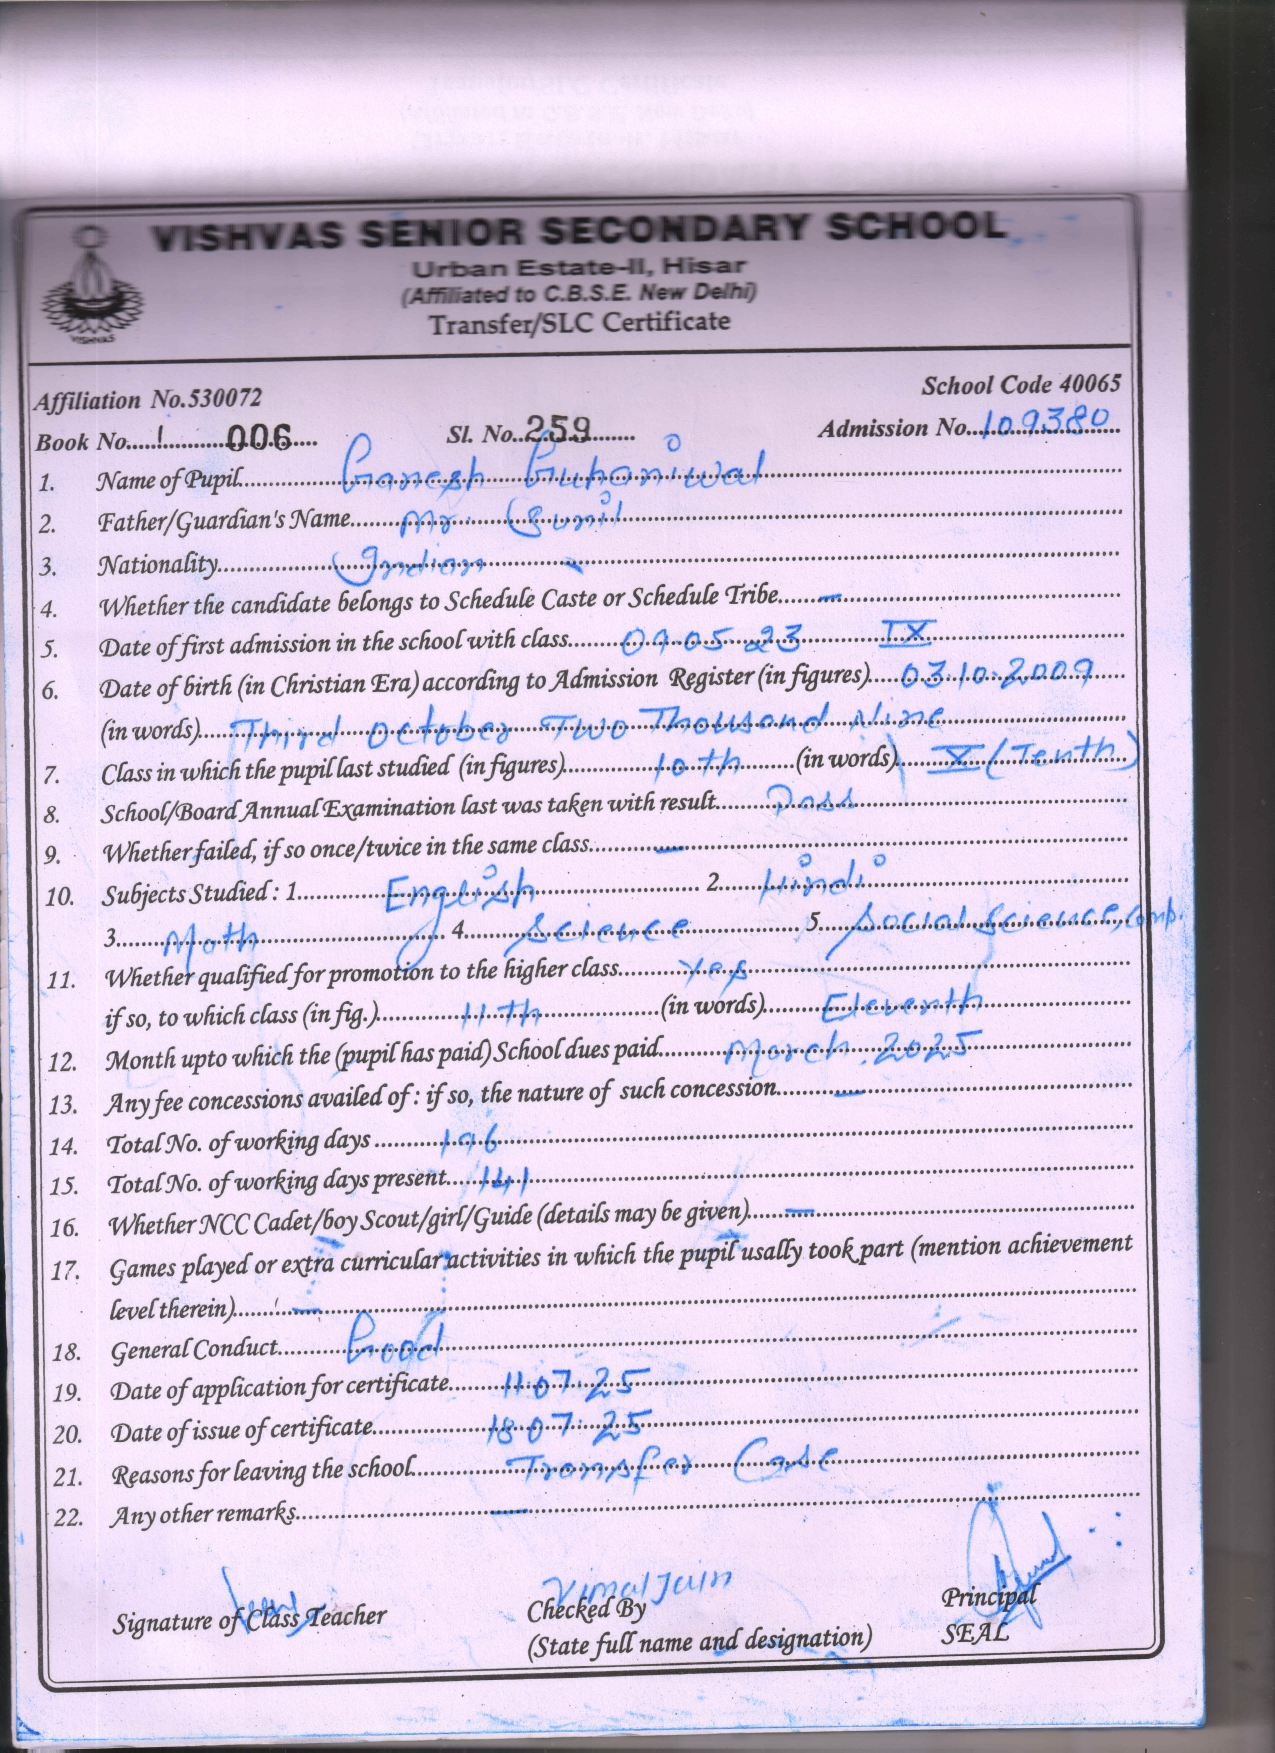 VISHVAS SENIOR SECONDARY SCHOOL
Urban Estate-II, Hisar
(Affiliated to C.B.S.E. New Delhi)
Transfer/SLC Certificate
VISHVAS
Affiliation No.530072 School Code 40065
Book No. 006 Sl. No. 259 Admission No. 109380
1. Name of Pupil Ganesh Guhaniwal
2. Father/Guardian's Name Mr. Sunil
3. Nationality Indian
4. Whether the candidate belongs to Schedule Caste or Schedule Tribe —
5. Date of first admission in the school with class 09.05.23 IX
6. Date of birth (in Christian Era) according to Admission Register (in figures) 03.10.2009
(in words) Third October Two Thousand Nine
7. Class in which the pupil last studied (in figures) 10th (in words) X (Tenth)
8. School/Board Annual Examination last was taken with result Pass
9. Whether failed, if so once/twice in the same class —
10. Subjects Studied : 1. English 2. Hindi
3. Math 4. Science 5. Social Science, Comp.
11. Whether qualified for promotion to the higher class Yes
if so, to which class (in fig.) 11th (in words) Eleventh
12. Month upto which the (pupil has paid) School dues paid March. 2025
13. Any fee concessions availed of : if so, the nature of such concession —
14. Total No. of working days 196
15. Total No. of working days present 141
16. Whether NCC Cadet/boy Scout/girl/Guide (details may be given) —
17. Games played or extra curricular activities in which the pupil usally took part (mention achievement
level therein) —
18. General Conduct Good
19. Date of application for certificate 11.07.25
20. Date of issue of certificate 18.07.25
21. Reasons for leaving the school Transfer Case
22. Any other remarks —
Vimal Jain
Signature of Class Teacher Checked By Principal
(State full name and designation) SEAL